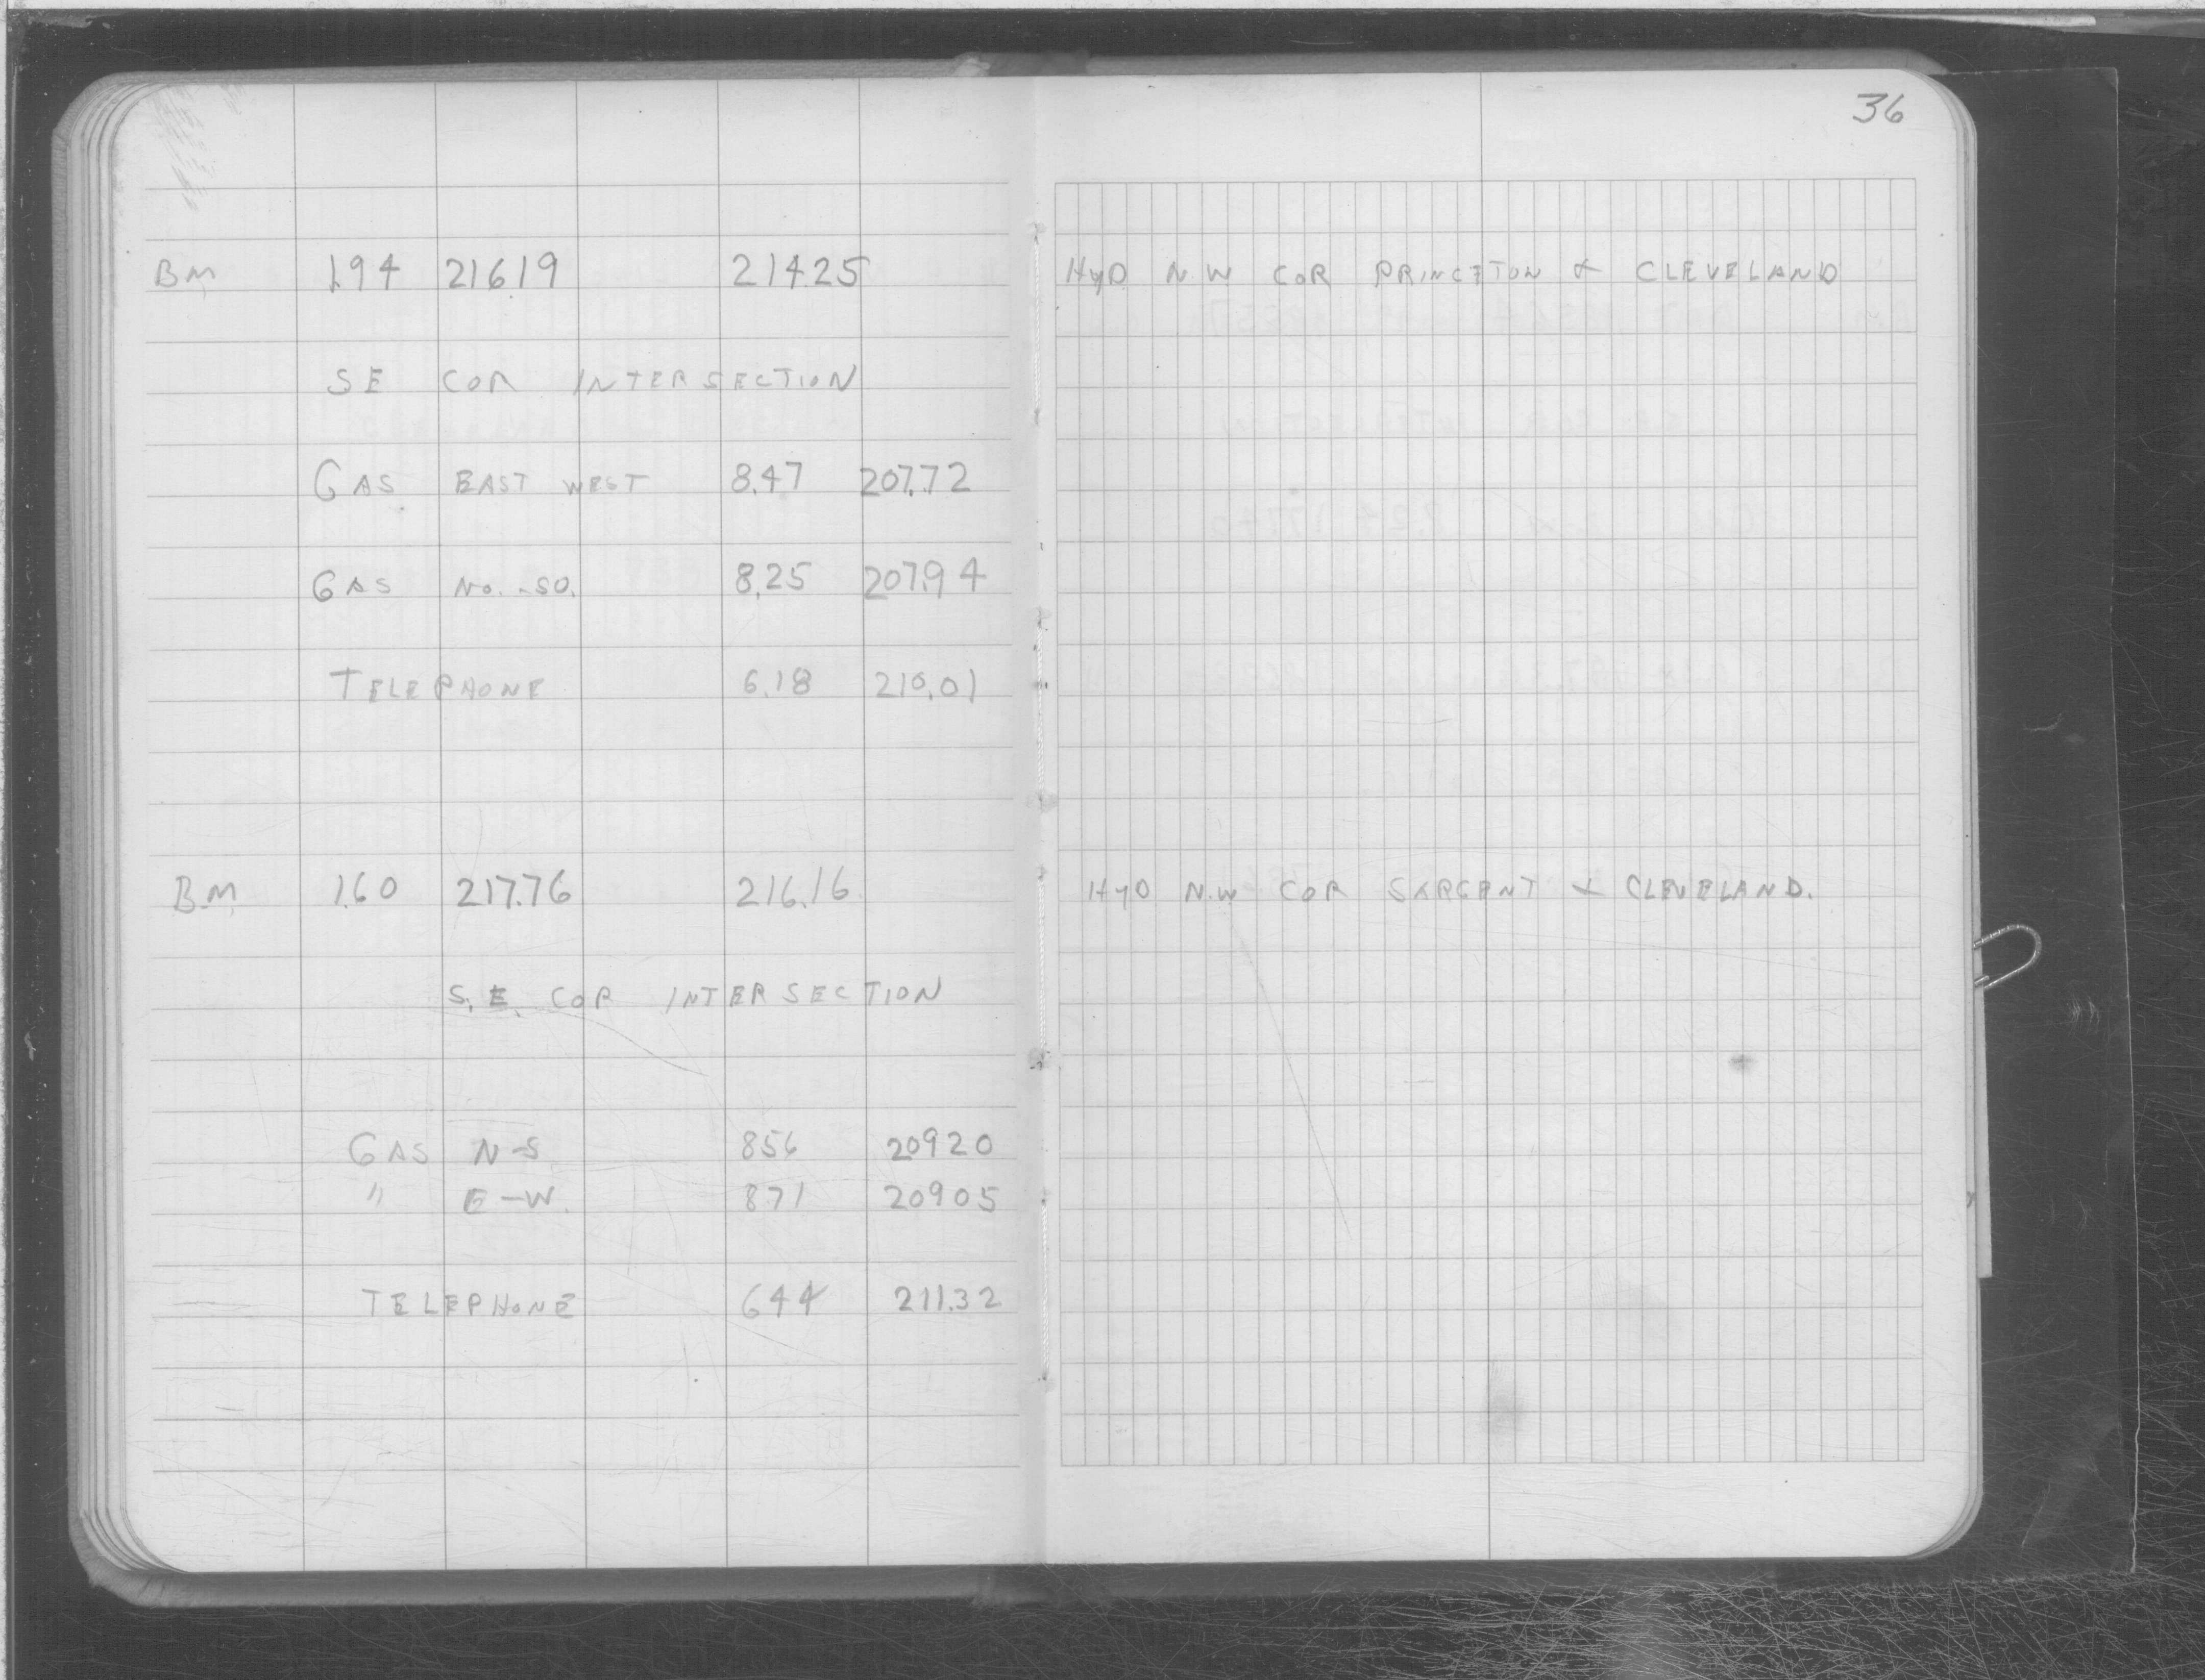 36
BM 1.94 216.19 214.25 HyD N W COR PRINCETON & CLEVELAND
SE COR INTERSECTION
GAS EAST WEST 8.47 207.72
GAS No. - SO. 8.25 207.94
TELEPHONE 6.18 210.01
B.M. 1.60 217.76 216.16 HyD N.W COR SARGENT & CLEVELAND.
S.E. COR INTERSECTION
GAS N-S 856 20920
" E-W. 871 20905
TELEPHONE 644 211.32